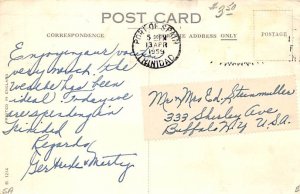 $3.50
POST CARD
CORRESPONDENCE
ADDRESS ONLY
PORT OF SPAIN
5 PM
13 APR
1959
TRINIDAD
Enjoying our
very much. The
weather has been
ideal. Today we
are spending in
Trinidad
Regards
Gertrude & Marty
Mr & Mrs Ed. Steinmuller
333 Shirley Ave
Buffalo N.Y. U.S.A.